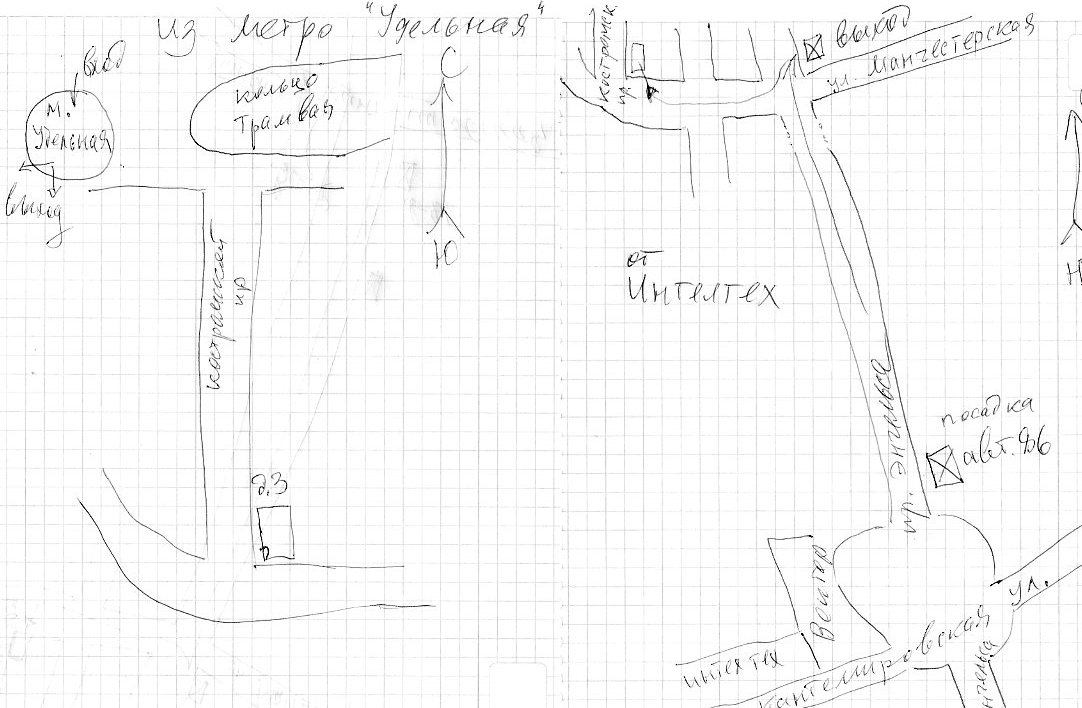 из метро "Удельная"
вход
м.
Удельная
выход
кольцо
трамвая
С
Ю
костромской
пр
д.3
Костромск.
пр
выход
ул. Манчестерская
от
Интелтех
посадка
авт. 86
пр. Энгельса
Вектор
интехтех
Кантемировская ул.